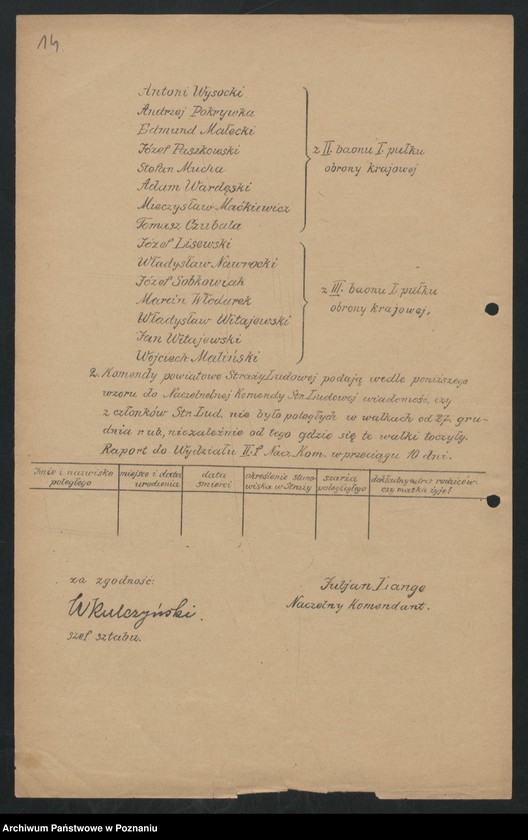 14
Antoni Wysocki
Andrzej Pokrywka
Edmund Małecki
Józef Paszkowski
Stefan Mucha
Adam Wardęski
Mieczysław Maćkiewicz
Tomasz Czubała
z II. baonu I. pułku
obrony krajowej
Józef Lisewski
Władysław Nawrocki
Józef Sobkowiak
Marcin Włodarek
Władysław Witajewski
Jan Witajewski
Wojciech Maliński
z III. baonu I. pułku
obrony krajowej.
2. Komendy powiatowe Straży Ludowej podają wedle poniższego
wzoru do Naczelnej Komendy Str. Ludowej wiadomość, czy
z członków Str. Lud. nie było poległych w walkach od 27. gru-
dnia r. ub., niezależnie od tego gdzie się te walki toczyły.
Raport do Wydziału II.f Nacz. Kom. w przeciągu 10 dni.
Imię i nazwisko
poległego
miejsce i data
urodzenia
data
śmierci
określenie stano-
wiska w Straży
szarża
poległego
dokładny adres rodziców
czy matka żyje?
za zgodność:
WKulczyński.
szef sztabu.
Juljan Lange
Naczelny Komendant.
Archiwum Państwowe w Poznaniu